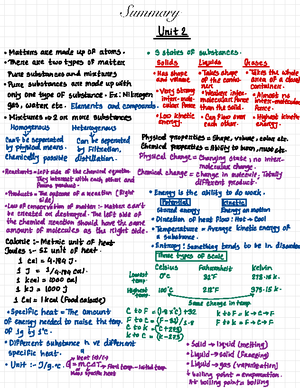 Summary
Unit 2
• Matters are made up of atoms.
• There are two types of matter
Pure substances and mixtures
• Pure substances are made up with
only one type of substance. Ex: Nitrogen
gas, water etc. Elements and compounds.
• Mixtures → 2 or more substances
Homogenous
Heterogenous
Can't be
separated by
physical means.
chemically possible
Can be seperated
by filtration,
distillation.
• Reactants :- left side of the chemical equation
They interact with each other and
forms product.
• Products = The outcome of a reaction (Right
side)
• Law of conservation of matter :- Matter can't
be created or destroyed. The left side of
the chemical reaction should have the same
amount of molecules as the right side.
Calorie :- Metric unit of heat
Joules :- SI unit of heat
1 cal = 4.184 J
1 J = 1/4.184 cal
1 kcal = 1000 cal
1 kJ = 1000 J
1 Cal = 1 kcal (Food calorie)
• Specific heat = The amount
of energy needed to raise the temp.
of 1g by 1°c.
• Different substance have different
specific heat.
• Unit :- J/g.°c
Heat (J)/cal
Q = mCΔT → Final temp - Initial temp.
Mass specific heat
• 3 states of substances.
Solids
Liquids
Gases
• Has shape
and volume
• Very strong
inter-molecular
force
• Low kinetic
energy
• Takes shape
of the container
• Has low inter-
molecular force
than the solid.
• Can flow over
each other.
• Takes the whole
area of a closed
container.
• Almost no
inter-molecular
force.
• Highest kinetic
energy.
Physical properties = Shape, volume, color etc.
Chemical properties = Ability to burn, rust etc.
Physical change = Changing state; no inter-
molecular change
Chemical change = Change in molecule, Totally
different product.
• Energy is the ability to do work.
Potential
Kinetic
Stored energy
Energy on motion
• Direction of heat flow: Hot → Cool
• Temperature = Average kinetic energy of
a substance.
• Entropy : Something tends to be in disorder
Three types of Scale
Celsius
Fahrenheit
Kelvin
Lowest temp
0°c
32°F
273.15 k
Highest temp
100°c
212°F
373.15 k
Same change in temp
C to F = (C × 9/5) + 32
F to C = (F - 32) / 1.8
C to K = C + 273
K to C = K - 273
K to F = K → C → F
F to K = F → C → K
• Solid → liquid (melting)
• Liquid → solid (freezing)
• Liquid → gas (vaporization)
↓ boiling point = evaporation.
At boiling point = boiling